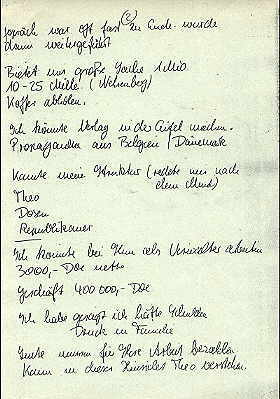 Gespräch war oft fast zu Ende wurde
dann weitergeführt
Bietet uns große Sache 1 Mio
10-25 Mille. (Nehrenberg)
Koffer abholen.
Ich könnte Verlag in der Eifel machen.
Propagandha aus Belgien / Dänemark
Kannte meine Struktur (redete nur nach
dem Mund)
Theo
Dosen
Republikaner
Ich könnte bei Ihm als Verwalter arbeiten
3000,- netto
Geschäft 400 000,-
Ich habe gesagt ich hätte Schulden
Druck in Familie
Leute müssen für Ihre Arbeit bezahlen
Kann in dieser Hinsicht Theo verstehen.